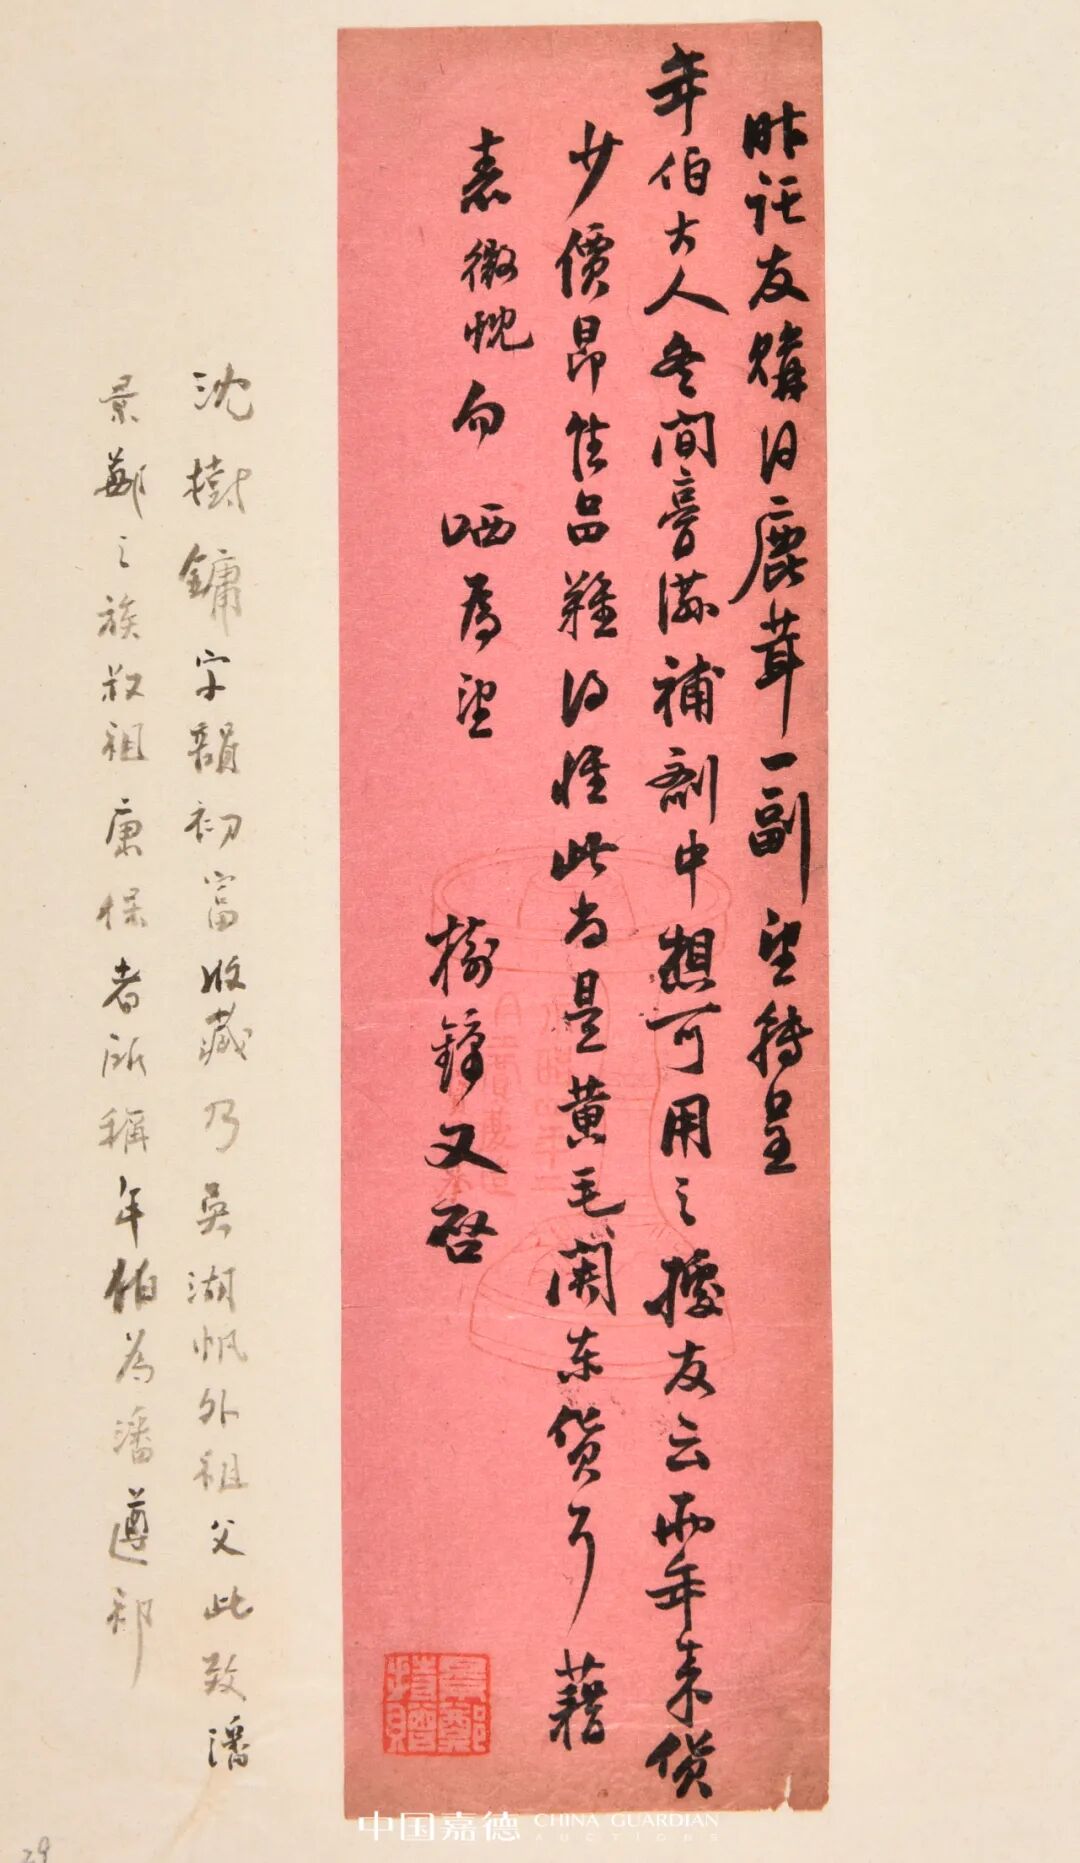 昨託友購得鹿茸一副望轉呈
年伯大人冬間膏滋補劑中想可用之據友云兩年來貨
少價昂佳品難得惟此尚是黃毛關東貨耳藉
表微忱勿哂為望
樹鏞又啓
沈樹鏞字韻初富收藏乃吳湖帆外祖父此致潘
景鄭之族叔祖康保者所稱年伯為潘遵祁
景鄭
持贈
中国嘉德 CHINA GUARDIAN
AUCTIONS
29